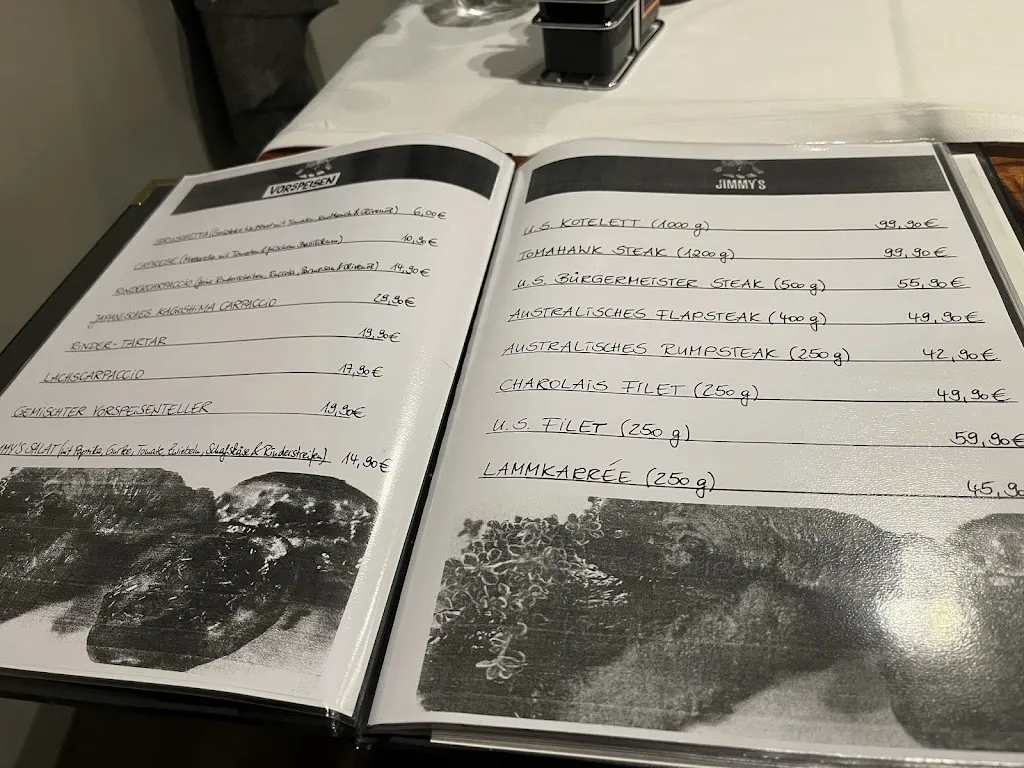 VORSPEISEN
BRUSCHETTA (Geröstetes Weißbrot mit Tomaten, Knoblauch & Olivenöl) 6,00€
CAPRESE (Mozzarella mit Tomaten & frischem Basilikum) 10,90€
RINDERCARPACCIO (feine Rinderscheiben, Ruccola, Parmesan & Olivenöl) 14,90€
JAPANISCHES KAGOSHIMA CARPACCIO 29,90€
RINDER-TARTAR 19,90€
LACHSCARPACCIO 17,90€
GEMISCHTER VORSPEISENTELLER 19,90€
MMY'S SALAT (mit Paprika, Gurke, Tomate, Zwiebeln, Schafskäse & Rinderstreifen) 14,90€
JIMMY'S
U.S. KOTELETT (1000 g) 99,90€
TOMAHAWK STEAK (1200 g) 99,90€
U.S. BÜRGERMEISTER STEAK (500 g) 55,90€
AUSTRALISCHES FLAPSTEAK (400 g) 49,90€
AUSTRALISCHES RUMPSTEAK (250 g) 42,90€
CHAROLAIS FILET (250 g) 49,90€
U.S. FILET (250 g) 59,90€
LAMMKARRÉE (250 g) 45,90